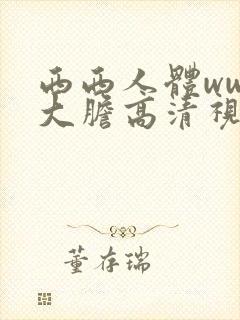 西西人體ww
大膽高清視
董存瑞